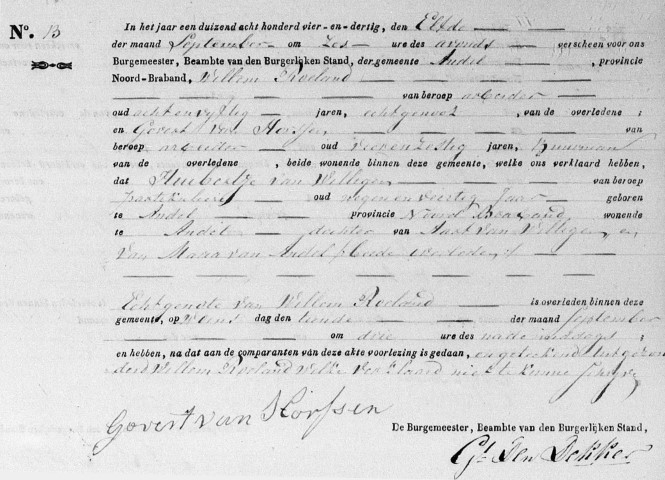 N.º 13
In het jaar een duizend acht honderd vier-en-dertig, den Elfde
der maand September om Zes ure des avonds verscheen voor ons
Burgemeester, Beambte van den Burgerlijken Stand, der gemeente Andel, provincie
Noord-Braband, Willem Roeland
van beroep arbeider
oud acht en vyftig jaren, echtgenoot, van de overledene ;
en Govert van Horssen van
beroep arbeider oud vier en Zestig jaren, Buurman
van de overledene, beide wonende binnen deze gemeente, welke ons verklaard hebben,
dat Huibertje van Willigen van beroep
oud negen en veertig Jaar geboren
te Andel provincie Noord Braband, wonende
te Andel dochter van Aart van Willigen, en
van Maria van Andel beide overleden
Echtgenote van Willem Roeland is overleden binnen deze
gemeente, op Woens dag den tiende der maand September
om drie ure des na de middags
en hebben, na dat aan de comparanten van deze akte voorlezing is gedaan,
Willem Roeland welke verklaard niet te kunne Schryve
Govert van Horssen
De Burgemeester, Beambte van den Burgerlijken Stand,
Gt Den Dekker